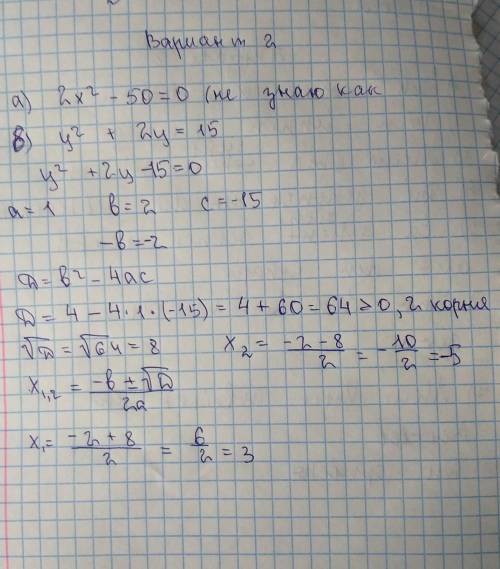 Вариант 2
а) 2x² - 50 = 0 (не знаю как
в) y² + 2y = 15
y² + 2y - 15 = 0
a = 1 в = 2 c = -15
-в = -2
D = в² - 4ac
D = 4 - 4 · 1 · (-15) = 4 + 60 = 64 > 0, 2 корня
√D = √64 = 8 x₂ = (-2 - 8)/2 = -10/2 = -5
x₁,₂ = (-в ± √D)/2a
x₁ = (-2 + 8)/2 = 6/2 = 3